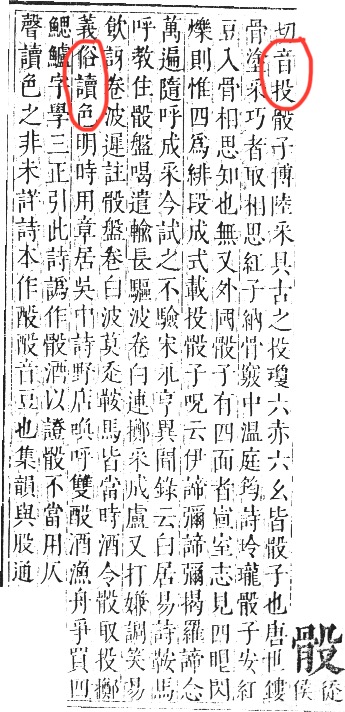 骰
從
侯
切音投骰子博陸采具古之投瓊六赤六幺皆骰子也唐世鏤
骨塗朱巧者取相思紅子納骨竅中溫庭筠詩玲瓏骰子安紅
豆入骨相思知也無又外國骰子有四面者宣室志見四眼閃
爍則惟四為緋段成式載投骰子呪云伊諦彌諦彌揭羅諦念
萬遍隨呼成采今試之不驗宋永亨異聞錄云白居易詩鞍馬
呼教住骰盤喝遣輸長驅波卷白連擲采成盧又打嫌調笑易
飲訝卷波遲註骰盤卷白波莫走鞍馬皆當時酒令骰取投擲
義俗讀色明時用章居吳中詩野店喚呼雙酘酒漁舟爭買四
鰓鱸字學三正引此詩譌作骰酒以證骰不當用仄
聲讀色之非未詳詩本作酘酘音豆也集韻與股通